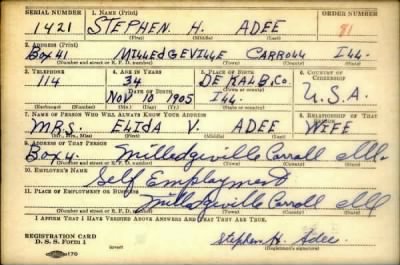 SERIAL NUMBER 1. NAME (Print) ORDER NUMBER
1421 STEPHEN H. ADEE 81
(First) (Middle) (Last)
2. ADDRESS (Print)
Box 41 MILLEDGEVILLE CARROLL ILL.
(Number and street or R. F. D. number) (Town) (County) (State)
3. TELEPHONE 4. AGE IN YEARS 5. PLACE OF BIRTH 6. COUNTRY OF CITIZENSHIP
114 34 DE KALB, CO.
DATE OF BIRTH (Town or county)
NOV 10 1905 ILL. U.S.A.
(Exchange) (Number) (Mo.) (Day) (Yr.) (State or country)
7. NAME OF PERSON WHO WILL ALWAYS KNOW YOUR ADDRESS 8. RELATIONSHIP OF THAT PERSON
MRS. ELIDA V. ADEE WIFE
(Mr., Mrs., Miss) (First) (Middle) (Last)
9. ADDRESS OF THAT PERSON
Box 41. Milledgeville Carroll Ill.
(Number and street or R. F. D. number) (Town) (County) (State)
10. EMPLOYER'S NAME
Self Employment
11. PLACE OF EMPLOYMENT OR BUSINESS
Milledgeville Carroll Ill
(Number and street or R. F. D. number) (Town) (County) (State)
I AFFIRM THAT I HAVE VERIFIED ABOVE ANSWERS AND THAT THEY ARE TRUE.
REGISTRATION CARD
D. S. S. Form 1 (over) Stephen H. Adee
(Registrant's signature)